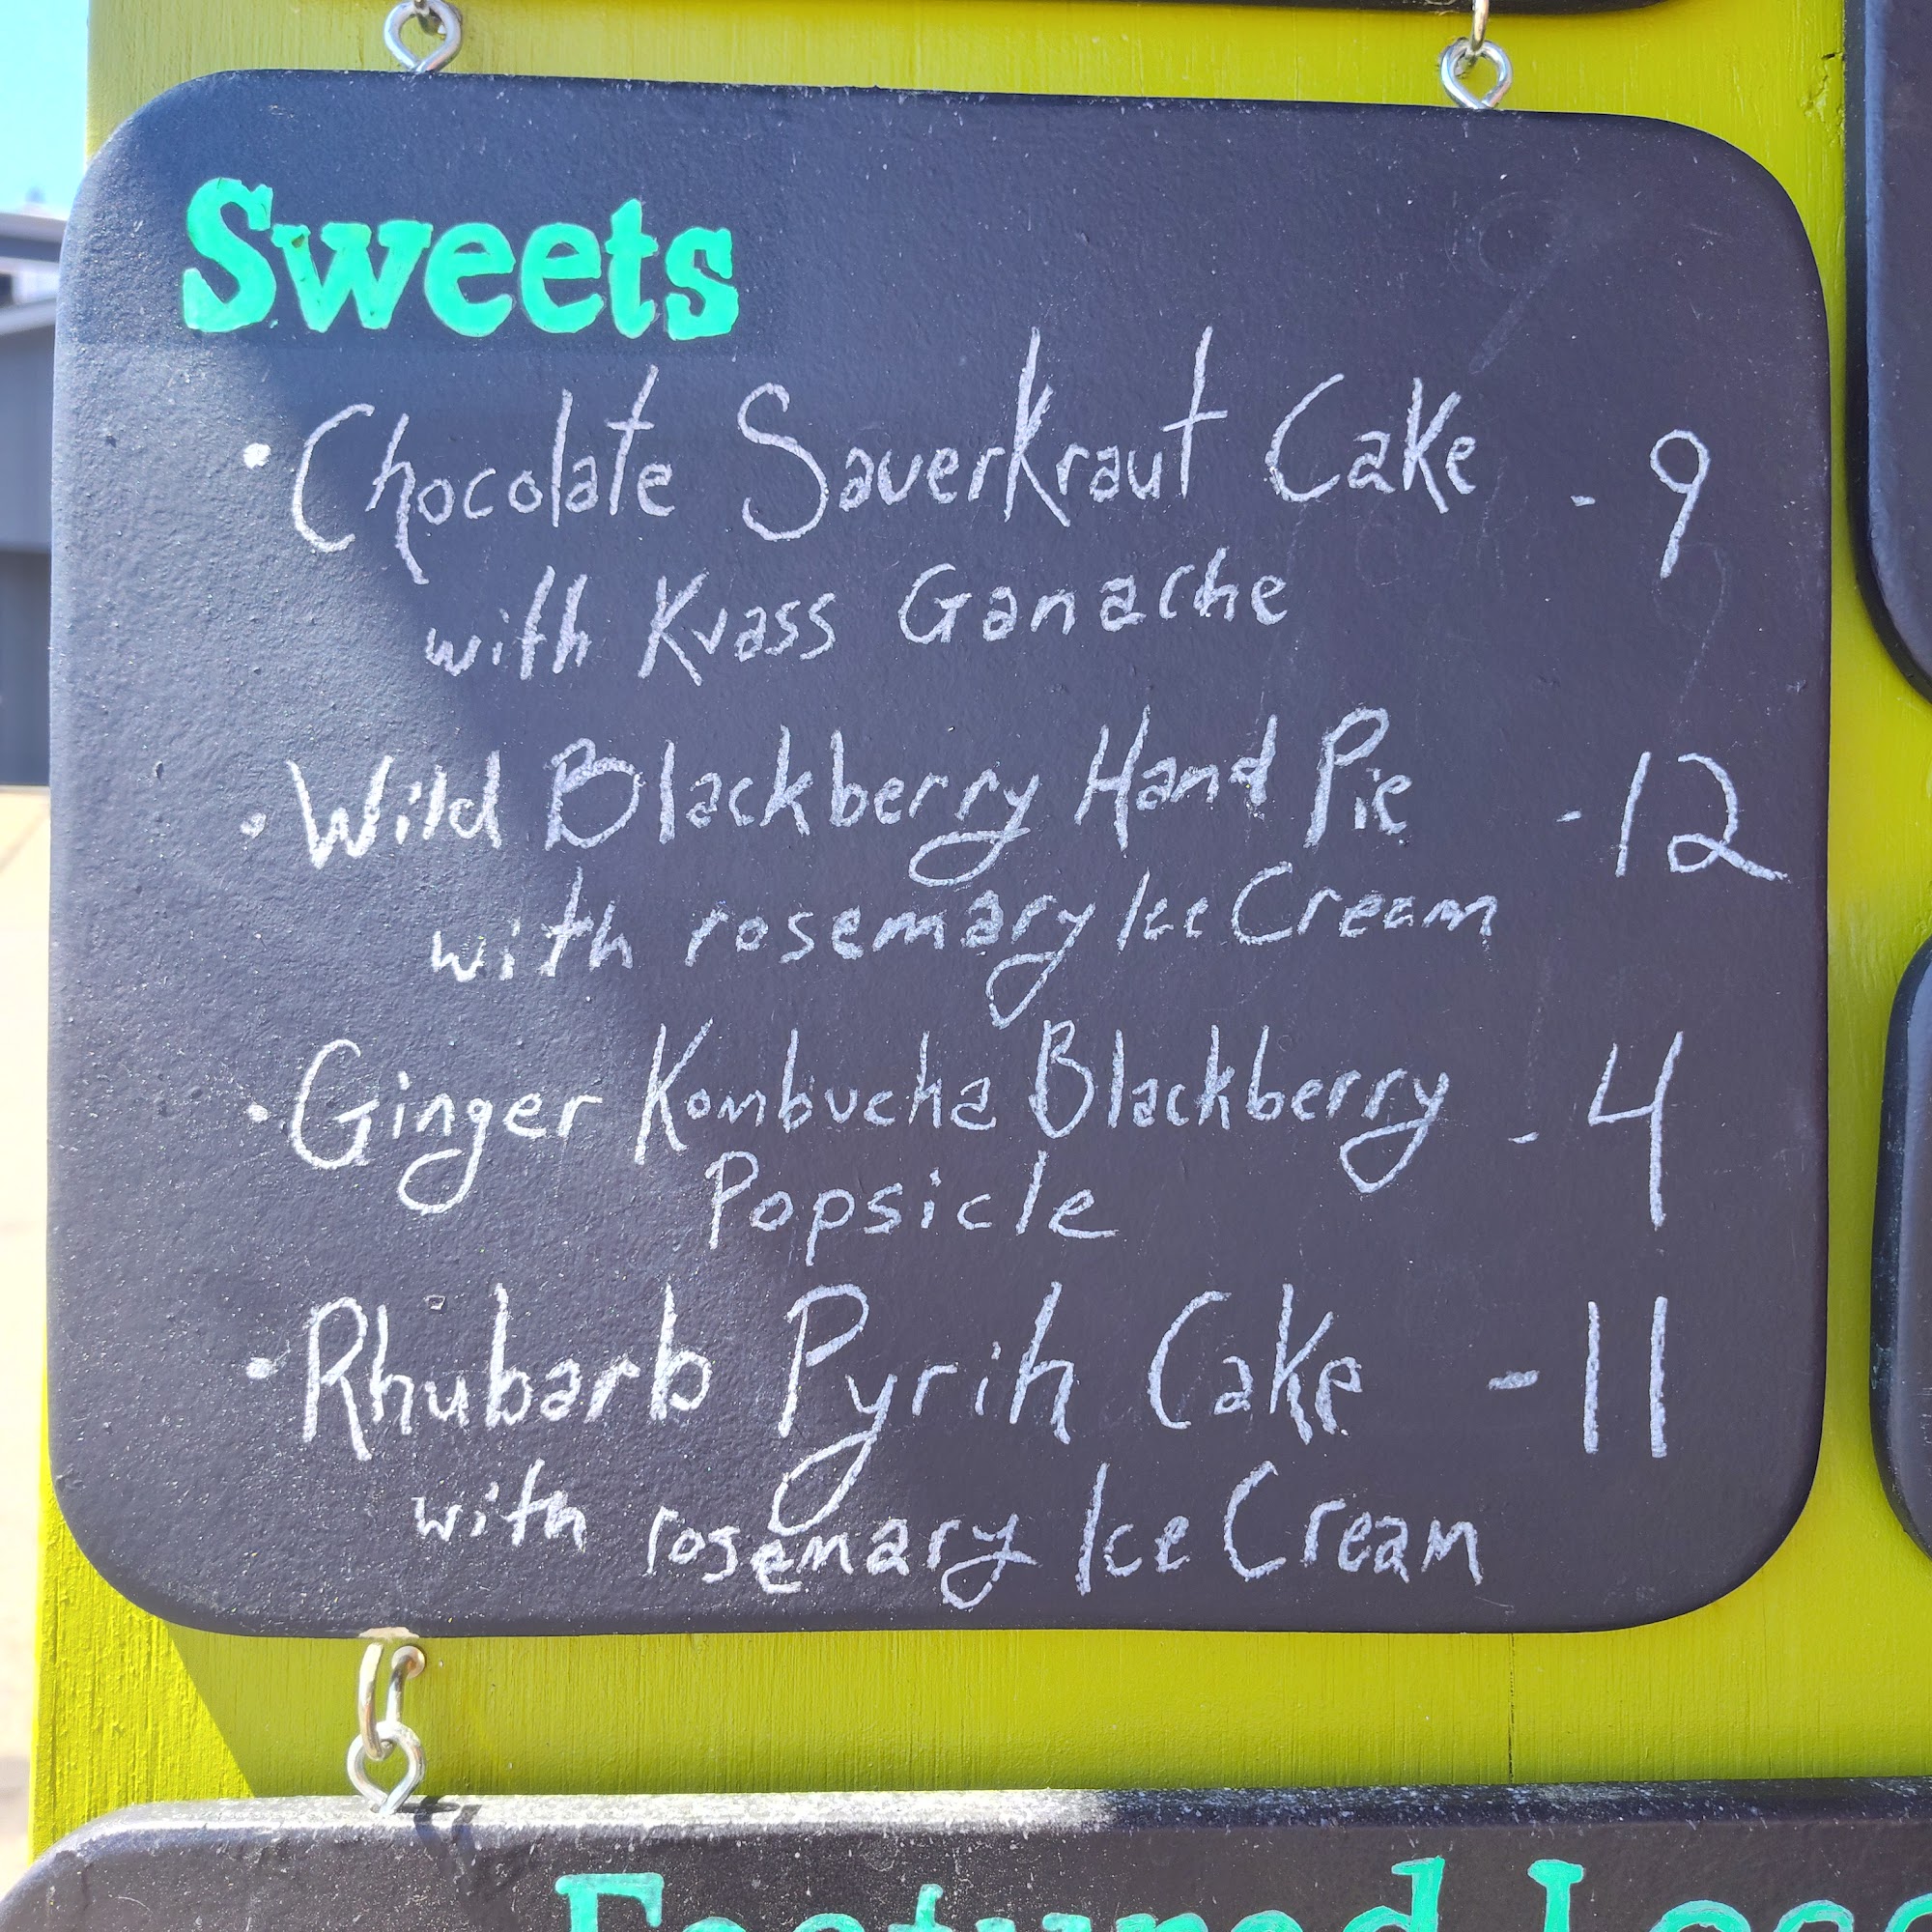 Sweets
• Chocolate Sauerkraut Cake - 9
with Kvass Ganache
• Wild Blackberry Hand Pie - 12
with rosemary Ice Cream
• Ginger Kombucha Blackberry - 4
Popsicle
• Rhubarb Pyrih Cake - 11
with rosemary Ice Cream
Featured